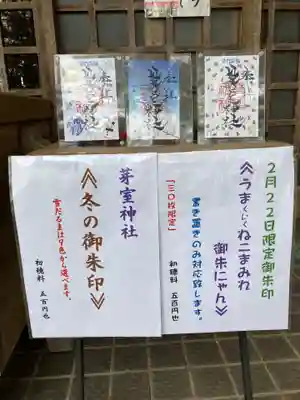 芽室神社
≪冬の御朱印≫
雪だるまは9色から選べます。
初穂料 五百円也
2月22日限定御朱印
≪うまくいくねこまみれ
御朱にゃん≫
書き置きのみ対応致します。
「三〇枚限定」
初穂料 五百円也